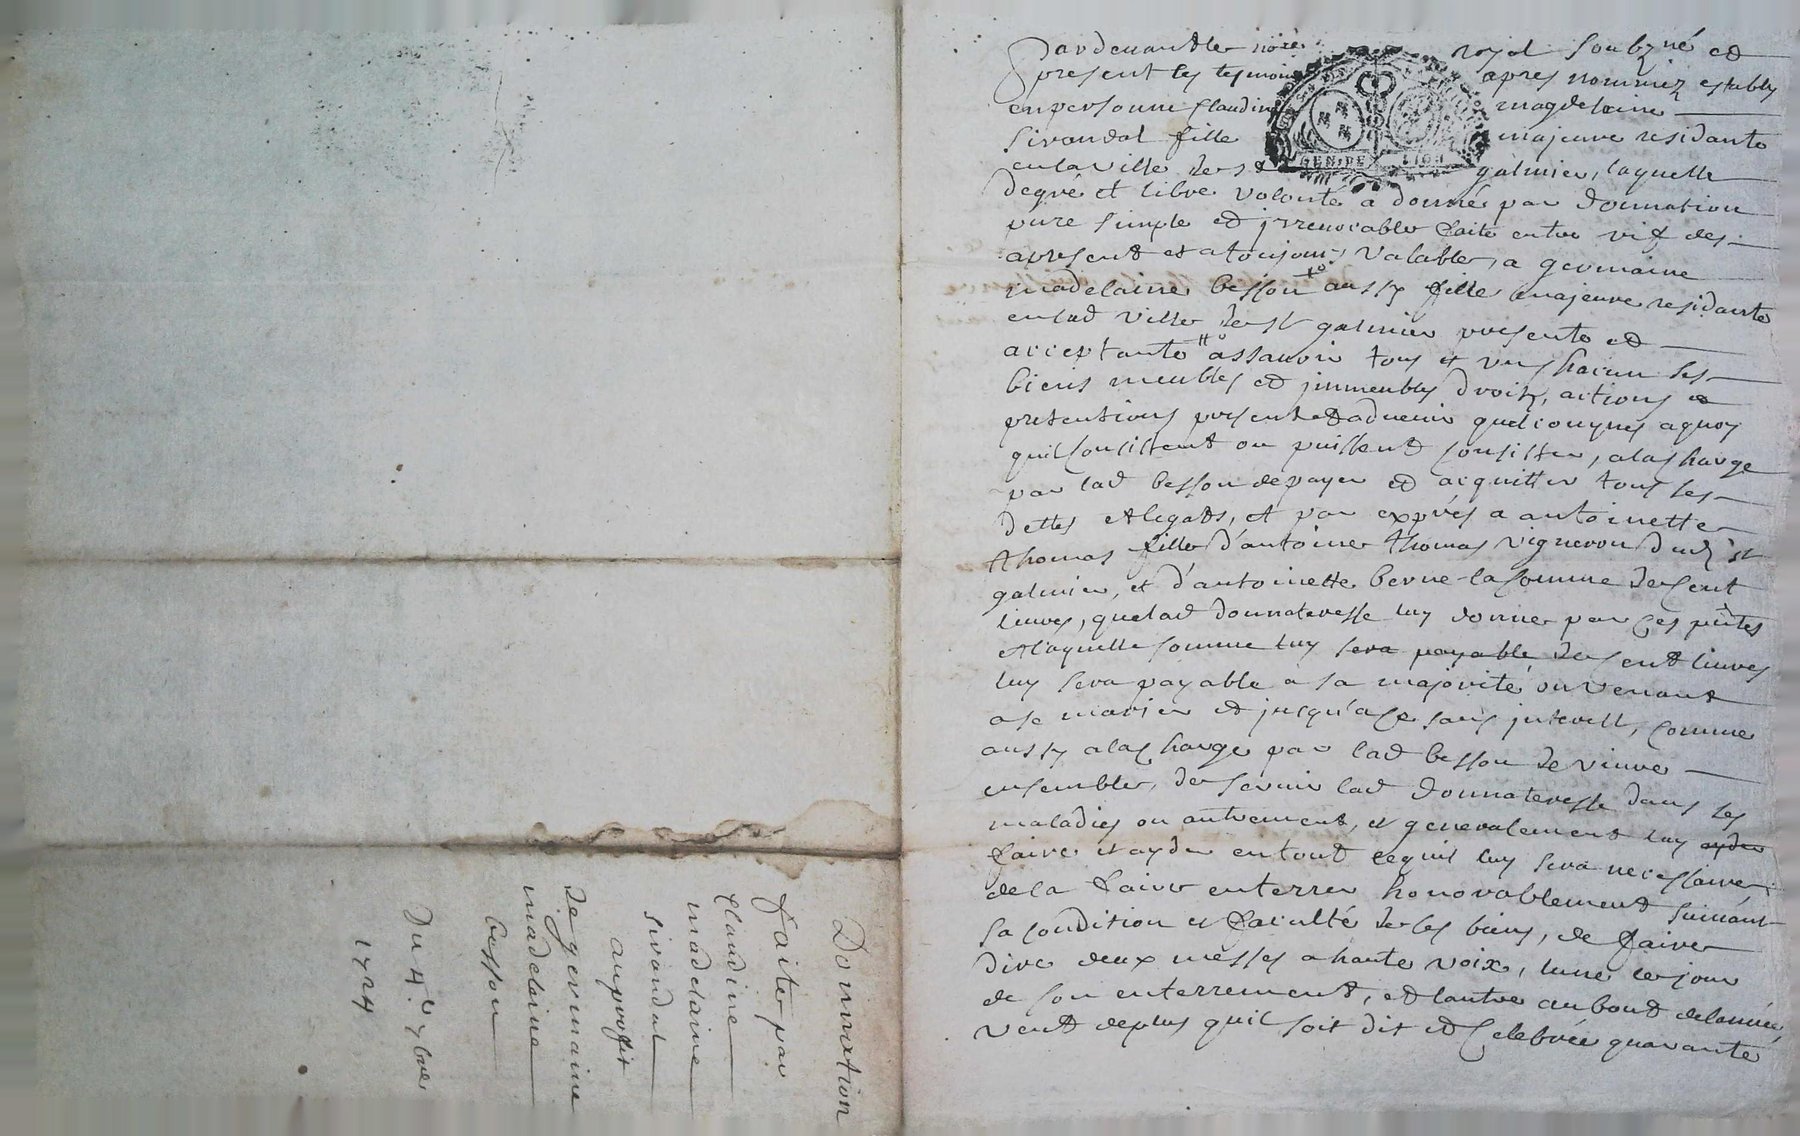 Donnation
faite par
Claudine
madelaine
sivandal
au proffit
de germaine
madelaine
besson
Du 4e 7bre
1724
Pardevant le nore royal soubzné et
present les tesmoins apres nommez estably
en personne Claudine magdelaine
Sivandal fille majeure residante
en la ville de st galmier, laquelle
de gré et libre volonté a donné par donnation
pure simple et jrrenocable faite entre vif des
apresent et a tousjours valable, a germaine
madelaine besson aussy fille majeure residante
en lad ville de st galmier presente et
acceptante assavoir tous et uns chacun ses
biens meubles et jmmeubles droits, actions et
pretentions present et advenir quelconques a quoy
quil consistent ou puissent consister, a la charge
par lad besson de payer et acquitter tous ses
dettes et legats, et par exprés a antoinette
thomas fille d'antoine thomas vigneron dud st
galmier, et d'antoinette berne la somme de cent
livres, que lad donnateresse luy donne par ces pñtes
et laquelle somme luy sera payable de cent livres
luy sera payable a sa majorité ou venant
a se marier et jusqu'a ce sans interest, comme
aussy a la charge par lad besson de vivre
ensemble, de servir lad donnateresse dans ses
maladies ou autrement, et generalement luy ayder
faire et ayder en tout ce quil luy sera necessaire
de la faire enterrer honorablement suivant
sa condition et faculté de ses biens, de faire
dire deux messes a haute voix, lune le jour
de son enterrement, et lautre au bout de lannée,
veut de plus quil soit dit et celebrée quarante
GEN. DE LION